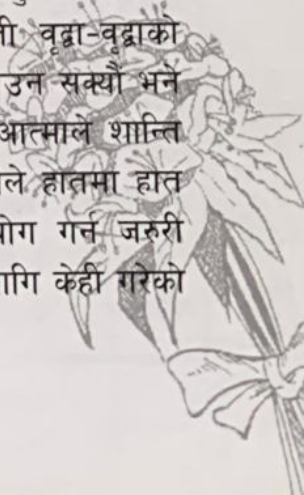 नी वृद्वा-वृद्वाको
उन सक्यौं भने
आत्माले शान्ति
ले हातमा हात
योग गर्न जरुरी
गि केही गरेको